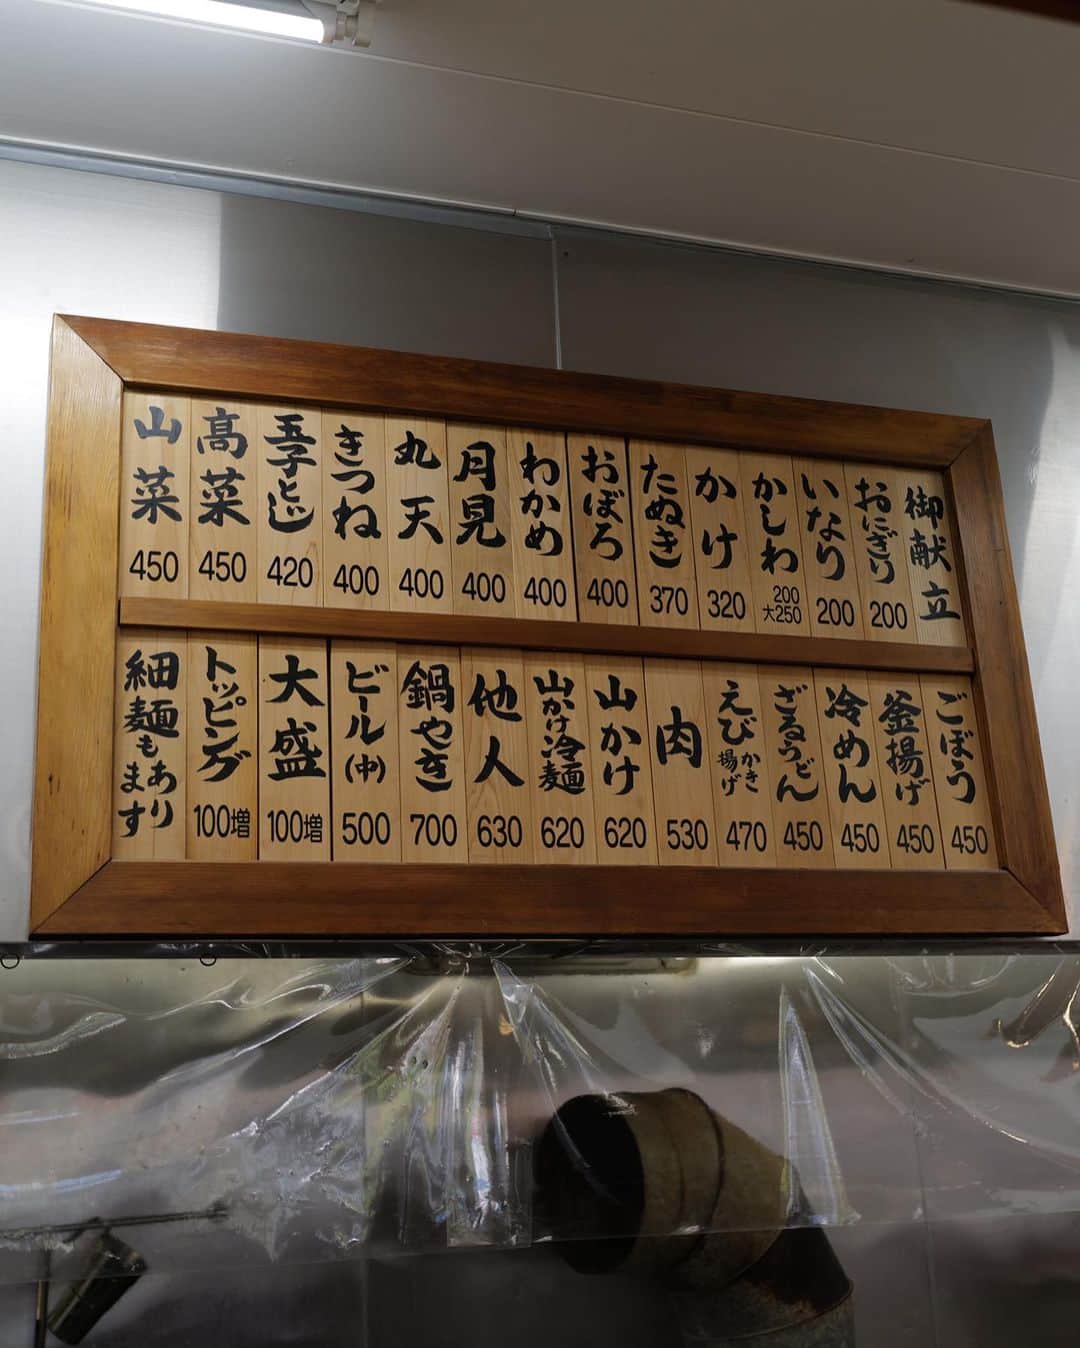 御献立
おにぎり 200
いなり 200
かしわ 200 大250
かけ 320
たぬき 370
おぼろ 400
わかめ 400
月見 400
丸天 400
きつね 400
玉子とじ 420
高菜 450
山菜 450
ごぼう 450
釜揚げ 450
冷めん 450
ざるうどん 450
えびかき揚げ 470
肉 530
山かけ 620
山かけ冷麺 620
他人 630
鍋やき 700
ビール(中) 500
大盛 100増
トッピング 100増
細麺もあります